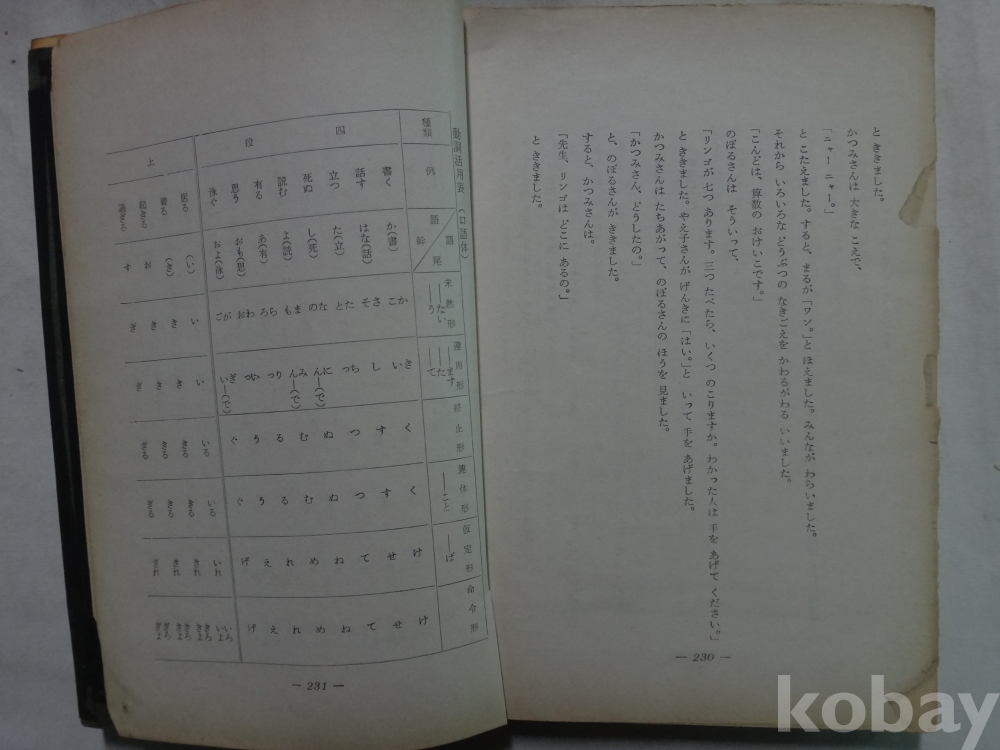 と ききました。
かつみさんは 大きな こえで、
「ニャー ニャー。」
と こたえました。すると、まるが「ワン。」と ほえました。みんなが わらいました。
それから いろいろな どうぶつの なきごえを かわるがわる いいました。
「こんどは、算数の おけいこです。」
のぼるさんは そういって、
「リンゴが 七つ あります。三つ たべたら、いくつ のこりますか。わかった 人は 手を あげて ください。」
と ききました。やえ子さんが げんきに「はい。」と いって 手を あげました。
かつみさんは たちあがって、のぼるさんの ほうを 見ました。
「かつみさん、どうしたの。」
と、のぼるさんが ききました。
すると、かつみさんは、
「先生、リンゴは どこに あるの。」
と ききました。
— 230 —
動詞活用表(口語体)
種類 例 語幹 語尾 未然形 ―ない ―う 連用形 ―ます ―た ―て 終止形 連体形 ―こと 仮定形 ―ば 命令形
四段
書く か(書) かこ きい く く け け
話す はな(話) さそ し す す せ せ
立つ た(立) たと ちっ つ つ て て
死ぬ し(死) なの にん―(で) ぬ ぬ ね ね
読む よ(読) まも みん―(で) む む め め
有る あ(有) らろ りっ る る れ れ
思う おも(思) わお いっ う う え え
泳ぐ およ(泳) がご ぎい―(で) ぐ ぐ げ げ
上
居る (い) い い いる いる いれ いろ いよ
着る (き) き き きる きる きれ きろ きよ
起きる お き き きる きる きれ きろ きよ
過ぎる す ぎ ぎ ぎる ぎる ぎれ ぎろ ぎよ
— 231 —
kobay